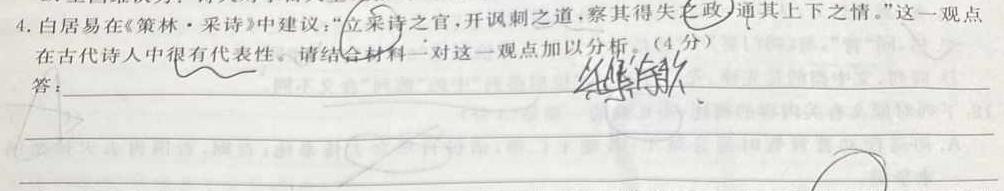 4. 白居易在《策林·采诗》中建议:“立采诗之官,开讽刺之道,察其得失之政,通其上下之情。”这一观点
在古代诗人中很有代表性。请结合材料一对这一观点加以分析。(4分)
答: